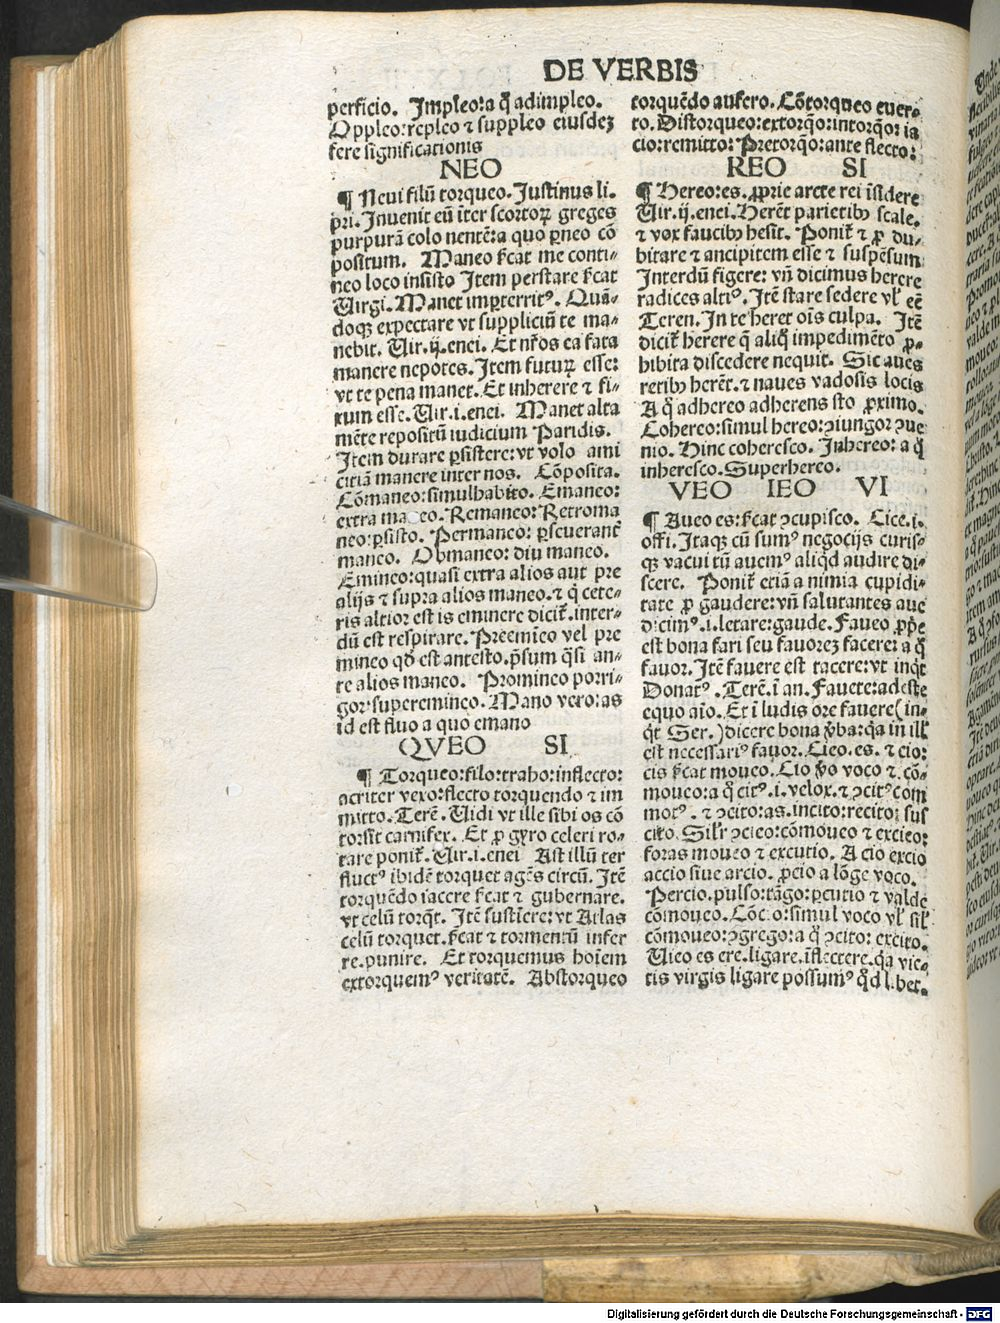 DE VERBIS
perficio. Impleo:a ꝙ adimpleo.
Oppleo:repleo ⁊ suppleo eiusdeꝫ
fere significationis
NEO
¶ Nevi filū torqueo. Justinus li.
pri. Invenit eū iter scortoꝝ greges
purpurā colo nentē:a quo ꝑneo cō
positum. Maneo ſ̄cat me conti-
neo loco insisto Item perstare ſ̄cat
Virgi. Manet imꝑterritꝰ. Quā-
doqꝫ expectare vt suppliciū te ma-
nebit. Vir.ij.enei. Et nr̄os ea fata
manere nepotes. Item futuꝝ esse:
vt te pena manet. Et inherere ⁊ fi-
xum esse. Vir.i.enei. Manet alta
mēte repositū iudicium Paridis.
Item durare ꝑsistere:vt volo ami
citiā manere inter nos. Cōposita.
Cōmaneo:simulhabito. Emaneo:
extra ma eo. Remaneo: Retroma
neo:ꝑsisto. Permaneo: ꝑseuerant̄
maneo. Obmaneo: diu maneo.
Emineo:quasi extra alios aut pre
alijs ⁊ supra alios maneo.⁊ q̇ cete-
ris altior est is eminere dicit̄.inter-
dū est respirare. Preemīeo vel pre
mineo qd̄ est antesto.p̄sum q̄si an-
te alios maneo. Promineo porri-
gor superemineo. Mano vero:as
id est fluo a quo emano
QVEO SI
¶ Torqueo:filo:traho:inflecto:
acriter vexo:flecto torquendo ⁊ im
mitto. Terē. Vidi vt ille sibi os cō
torsit carnifex. Et ꝓ gyro celeri ro-
tare ponit̄. Vir.i.enei Ast illū ter
fluctꝰ ibidē torquet agēs circū. Itē
torquēdo iacere ſ̄cat ⁊ gubernare.
vt celū torq̄t. Itē sustīere:vt Atlas
celū torquet.ſ̄cat ⁊ tormentū infer
re.punire. Et torquemus hoīem
extorquemꝰ veritatē. Abstorqueo
torquēdo aufero. Cōtorqueo euer-
to. Distorqueo:extorq̄o:intorq̄o: ia
cio:remitto: Pretorq̄o:ante flecto:
REO SI
¶ Hereo:es. ꝓprie arcte rei īsidere
Vir.ij.enei. Herēt parietibꝫ scale.
⁊ vox faucibꝫ hesit. Ponit̄ ⁊ ꝓ du-
bitare ⁊ ancipitem esse ⁊ suspēsum
Interdū figere: vn̄ dicimus herere
radices altiꝰ. Itē stare sedere vl̓ eē
Teren. In te heret oīs culpa. Itē
dicit̄ herere q̄ aliq̊ impedimēto ꝓ-
hibita discedere nequit. Sic aues
retibꝫ herēt.⁊ naues vadosis locis
A ꝙ adhereo adherens sto ꝓximo.
Cohereo:simul hereo:ꝯiungor ꝯue
nio. Hinc coheresco. Inhereo: a ꝙ
inheresco. Superhereo.
VEO IEO VI
¶ Aueo es:ſ̄cat ꝯcupisco. Cice.i.
offi. Itaqꝫ cū sumꝰ negocijs curis-
qꝫ vacui tū auemꝰ aliq̇d audire di-
scere. Ponit̄ etiā a nimia cupidi-
tate ꝓ gaudere:vn̄ salutantes aue
dicimꝰ.i.letare:gaude. Faueo ꝓpͥe
est bona fari seu fauoreꝫ facere: a ꝙ
fauor. Itē fauere est tacere:vt inq̇t
Donatꝰ. Terē.ī an. Fauete:adeste
equo aīo. Et ī ludis ore fauere(in-
q̇t Ser.)dicere bona v̓ba:q̄a in ill̓
est necessariꝰ fauor. Cieo.es.⁊ cio:
cis ſ̄cat moueo. Cio v̓o voco ⁊ cō-
moueo:a ꝙ citꝰ.i.velox.⁊ ꝯcitꝰcom
motꝰ. ⁊ ꝯcito:as.incito:recito: sus
cito. Sil̓r ꝯcieo:cōmoueo ⁊ excieo:
foras moueo ⁊ excutio. A cio excio
accio siue arcio. ꝓcio a lōge voco.
Percio.pulso:tāgo:ꝑcutio ⁊ valde
cōmoueo. Cōc o:simul voco vl̓ sil̓
cōmoueo:ꝯgrego:a ꝙ ꝯcito: excito.
Vieo es ere.ligare.īflectere.q̄a vie-
tis virgis ligare possumꝰ q̊d l.bet.
Digitalisierung gefördert durch die Deutsche Forschungsgemeinschaft - DFG